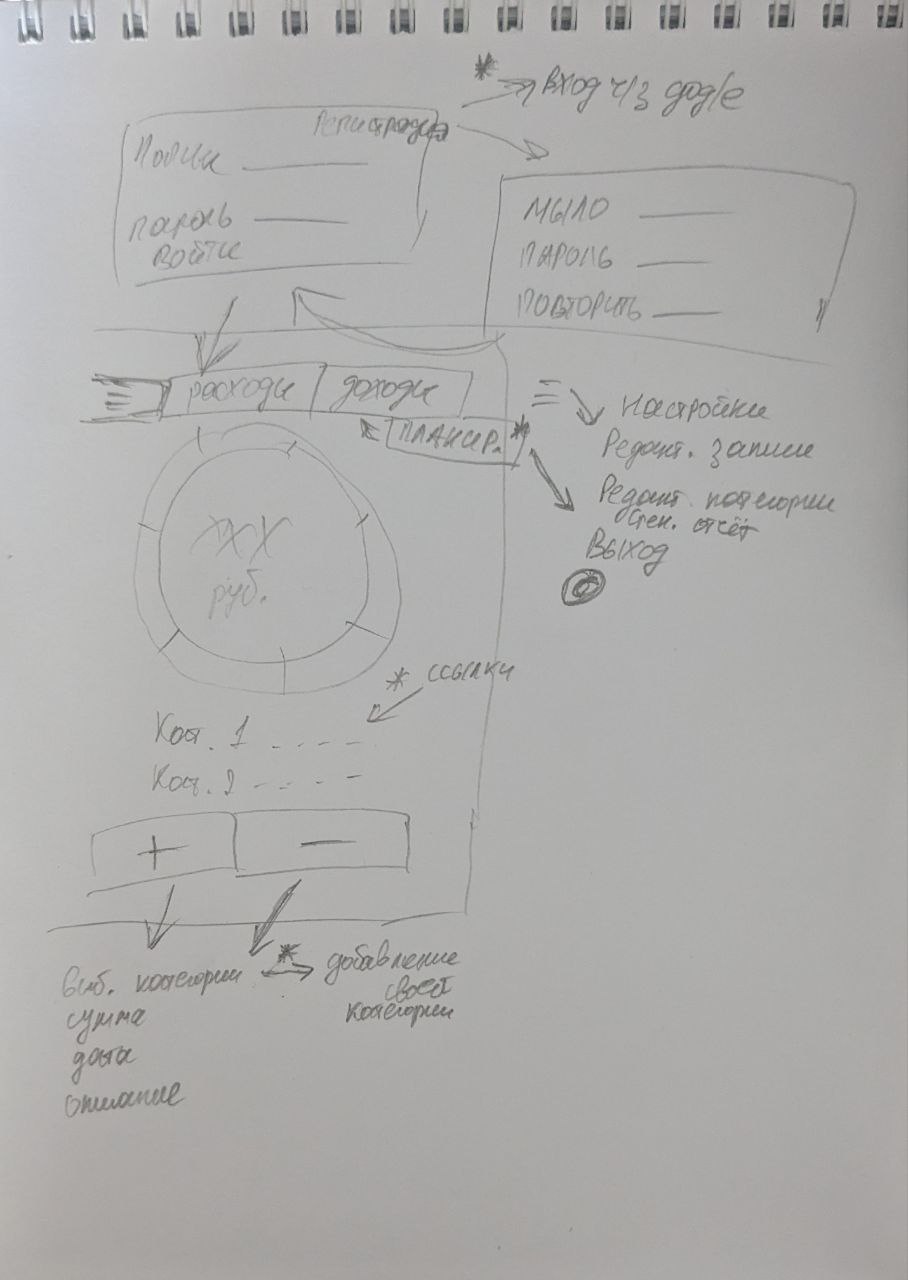 * Вход ч/з gogle
Регистрация
Логин
пароль
Войти
МЫЛО
ПАРОЛЬ
ПОВТОРИТЬ
расходы
доходы
ПЛАНИР. *
Настройки
Редакт. записи
Редакт. категории
отчёт
Выход
XXX
руб.
* ссылки
Кат. 1
Кат. 2
+
—
выб. категории
* добавление
своей
категории
сумма
дата
описание